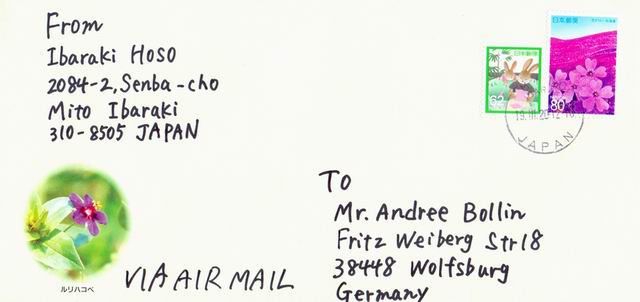 From
Ibaraki Hoso
2084-2, Senba-cho
Mito Ibaraki
310-8505 JAPAN
日本郵便
62
日本郵便
80
JAPAN
ルリハコベ
VIA AIR MAIL
To
Mr. Andree Bollin
Fritz Weiberg Str18
38448 Wolfsburg
Germany